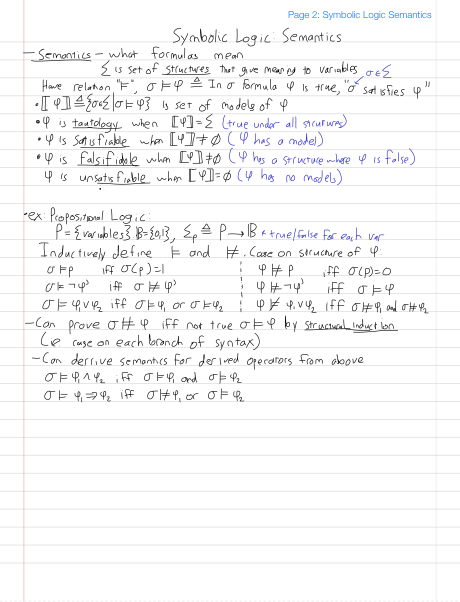 Page 2: Symbolic Logic Semantics
Symbolic Logic: Semantics
- Semantics - what formulas mean
Σ is set of structures that give meaning to variables
σ∈Σ
Have relation "⊨", σ ⊨ φ ≜ In σ formula φ is true, "σ satisfies φ"
• ⟦φ⟧ ≜ {σ∈Σ | σ ⊨ φ} is set of models of φ
• φ is tautology when ⟦φ⟧ = Σ (true under all structures)
• φ is satisfiable when ⟦φ⟧ ≠ ∅ (φ has a model)
• φ is falsifiable when ⟦φ⟧ ≠ ∅ (φ has a structure where φ is false)
φ is unsatisfiable when ⟦φ⟧ = ∅ (φ has no models)
• ex: Propositional Logic:
P = {variables} B = {0,1}, Σp ≜ P → B ← true/false for each var
Inductively define ⊨ and ⊭. Case on structure of φ:
σ ⊨ p iff σ(p) = 1 φ ⊭ p iff σ(p) = 0
σ ⊨ ¬φ' iff σ ⊭ φ' φ ⊭ ¬φ' iff σ ⊨ φ
σ ⊨ φ₁ ∨ φ₂ iff σ ⊨ φ₁ or σ ⊨ φ₂ φ ⊭ φ₁ ∨ φ₂ iff σ ⊭ φ₁ and σ ⊭ φ₂
- Can prove σ ⊭ φ iff not true σ ⊨ φ by structural induction
(ie case on each branch of syntax)
- Can derrive semantics for derived operators from above
σ ⊨ φ₁ ∧ φ₂ iff σ ⊨ φ₁ and σ ⊨ φ₂
σ ⊨ φ₁ ⇒ φ₂ iff σ ⊭ φ₁ or σ ⊨ φ₂